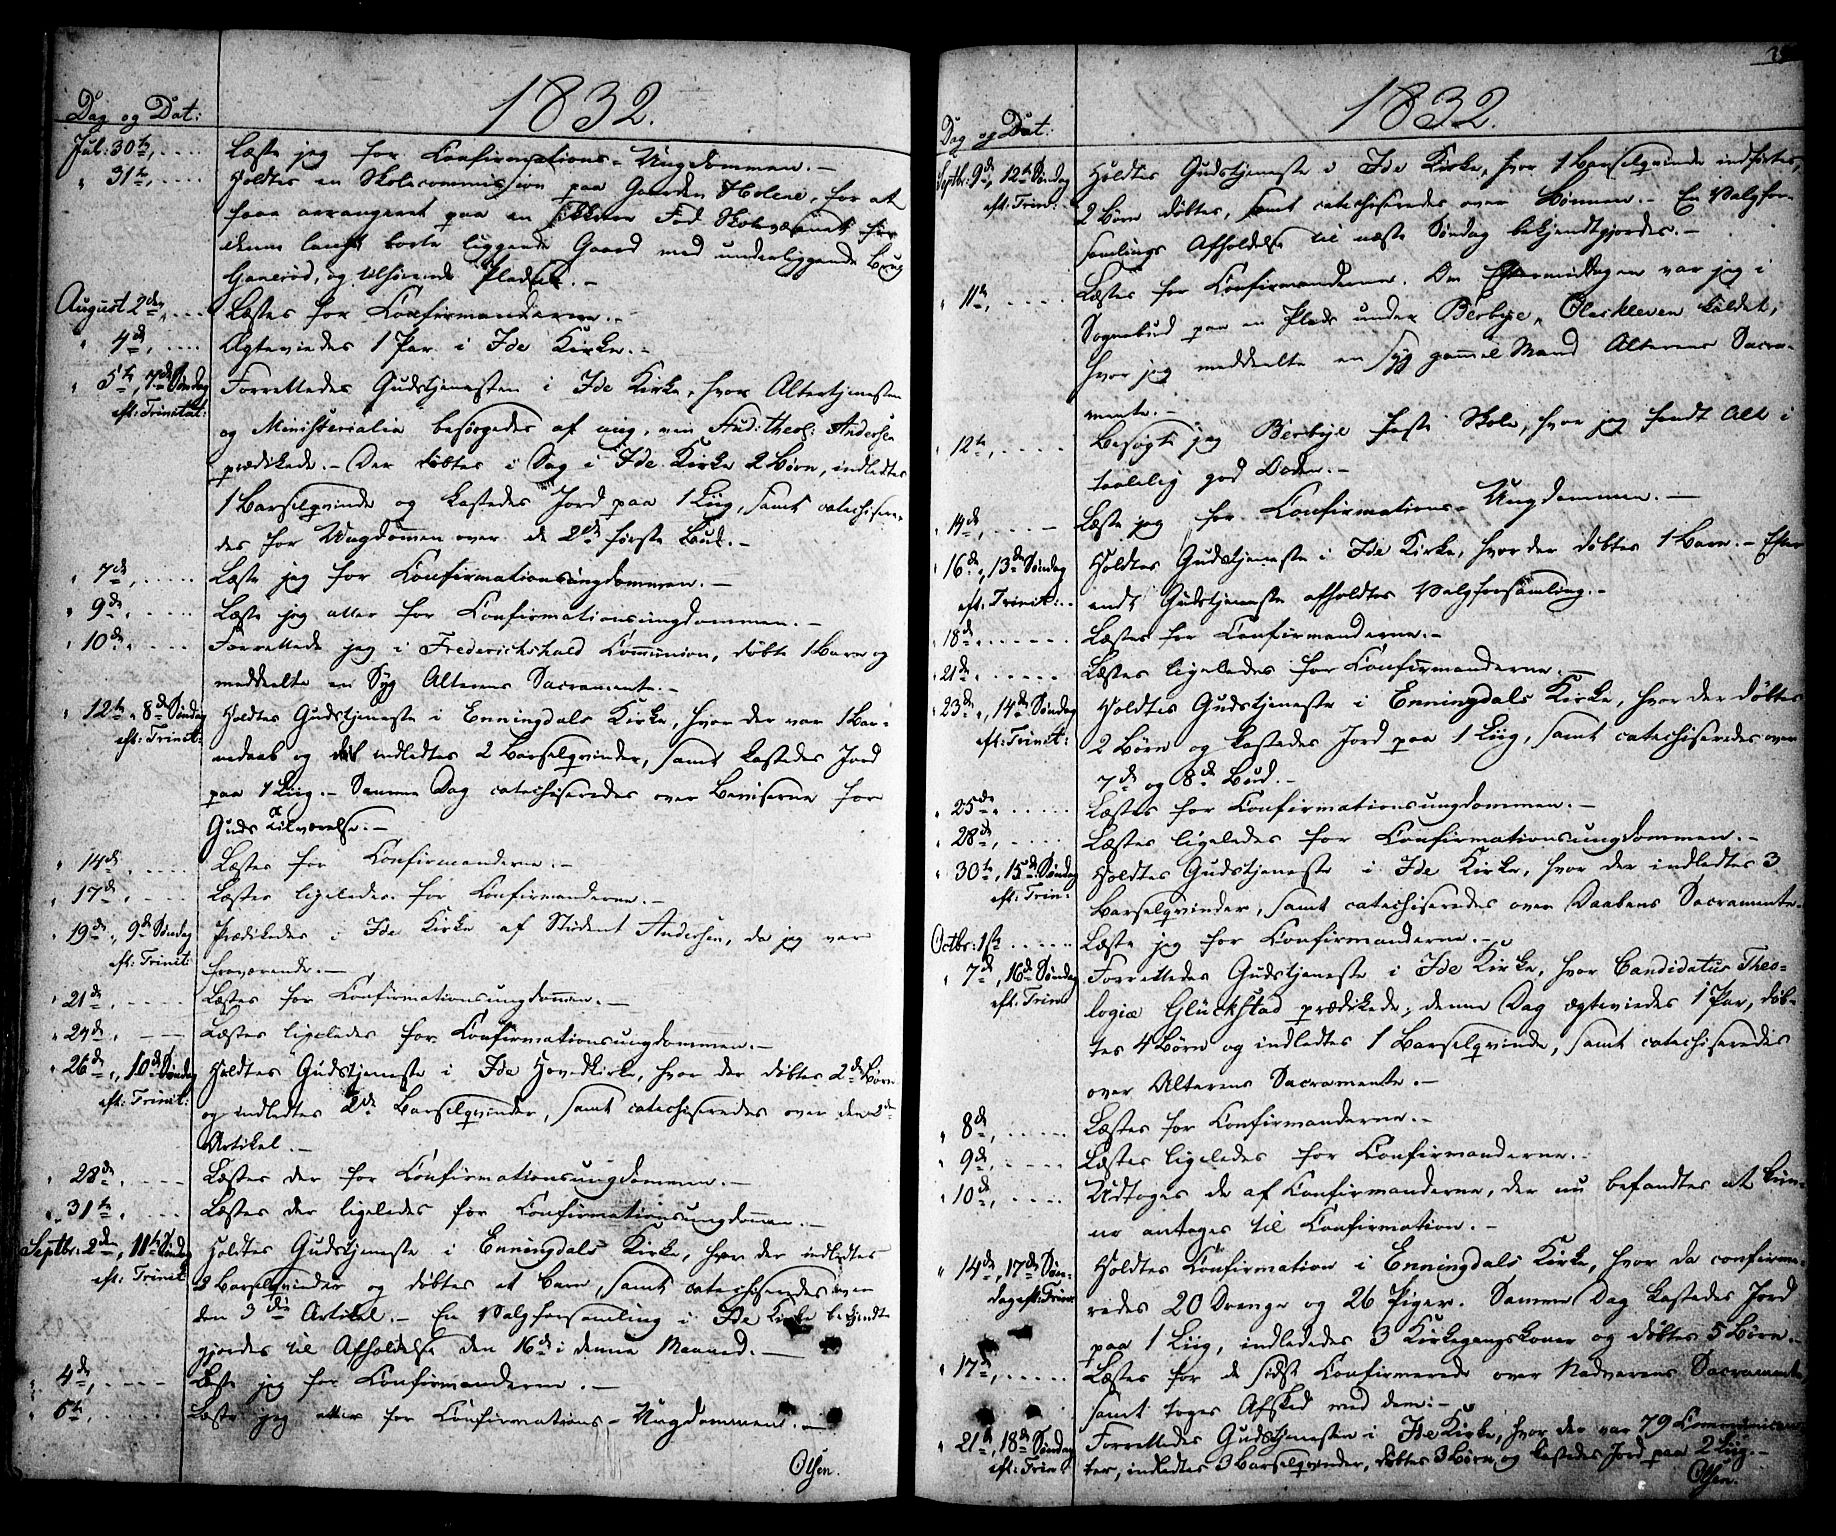 1832.
Dag og Dat:
Jul: 30te, .... Læste jeg for Confirmations-Ungdommen.-
" 31te, .... Holdtes en Skolecommission paa Gaarden Holene, for at
faae arrangeret paa en sikkrere Fod Skolevæsenet for
denne langt borte liggende Gaard med underliggende Brug
Ganerød, og tilhørende Pladse.-
August 2den, .... Læstes for Confirmanderne.-
" 4de, .... Ægteviedes 1 Par i Ide Kirke.-
" 5te, 7de Søndag Forrettedes Gudstjenesten i Ide Kirke, hvor Altertjenesten
eft: Trinitat: og Ministerialia besørgedes af mig, men Stud: theol: Andersen
prædikede.- Der døbtes i Dag i Ide Kirke 2 Børn, indledtes
1 Barselqvinde og kastedes Jord paa 1 Liig, samt catechisere-
des for Ungdomen over de 2de første Bud.-
" 7de, .... Læste jeg for Confirmationsungdommen.-
" 9de, .... Læste jeg atter for Confirmationsungdommen.-
" 10de, .... Forrettede jeg i Frederichshald Communion, døbte 1 Barn og
meddeelte en Syg Alterens Sacramente.-
" 12te, 8de Søndag Holdtes Gudstjeneste i Enningdals Kirke, hvor der var 1 Bar-
eft: Trinit: nedaab og indledtes 2 Barselqvinder, samt kastedes Jord
paa 1 Liig.- Samme Dag catechiseredes over Beviserne for
Guds Tilværelse.-
" 14de, .... Læstes for Confirmanderne.-
" 17de, .... Læstes ligeledes for Confirmanderne.-
" 19de, 9de Søndag Prædikedes i Ide Kirke af Student Andersen, da jeg var
eft: Trinit: fraværende.-
" 21de, .... Læstes for Confirmationsungdomen.-
" 24de, .... Læstes ligeledes for Confirmationsungdommen.-
" 26de, 10de Søndag Holdtes Gudstjeneste i Ide Hovedkirke, hvor der døbtes 2de Børn
eft: Trinit: og indledtes 2de Barselqvinder, samt catechiseredes over den 2den
Artikel.-
" 28de, .... Læstes der for Confirmationsungdommen.-
" 31te, .... Læstes der ligeledes for Confirmationsungdomen.-
Septbr: 2den, 11te Søndag Holdtes Gudstjeneste i Enningdals Kirke, hvor der indledtes
eft: Trinit: 2 Barselqvinder og døbtes et Barn, samt catechiseredes over
den 3die Artikel.- En Valgforsamling i Ide Kirke bekjendt-
gjordes til Afholdelse den 16de i denne Maaned.-
" 4de, .... Læste jeg for Confirmanderne.-
" 6te, .... Læste jeg atter for Confirmations-Ungdommen.-
Olsen.
1832.
Dag og Dat:
Septbr: 9de, 12te Søndag Holdtes Gudstjeneste i Ide Kirke, hvor 1 Barselqvinde indførtes,
eft: Trin: 2 Børn døbtes, samt catechiseredes over Bønnen.- En Valgfor-
samlings Afholdelse til næste Søndag bekjendtgjordes.-
" 11te, .... Læstes for Confirmanderne. Om Eftermiddagen var jeg i
Sognebud paa en Plads under Berbye, kaldet,
hvor jeg meddeelte en syg gammel Mand Alterens Sacra-
mente.-
" 12te, .... Besøgte jeg Berbye faste Skole, hvor jeg fandt Alt i
taalelig god Orden.-
" 14de, .... Læste jeg for Confirmations-Ungdommen.-
" 16de, 13de Søndag Holdtes Gudstjeneste i Ide Kirke, hvor der døbtes 1 Barn.- Efter
eft: Trinit: endt Gudstjeneste afholdtes Valgforsamling.-
" 18de, .... Læstes for Confirmanderne.-
" 21de, .... Læstes ligeledes for Confirmanderne.-
" 23de, 14de Søndag Holdtes Gudstjeneste i Enningdals Kirke, hvor der døbtes
eft: Trinit: 2 Børn og kastedes Jord paa 1 Liig, samt catechiseredes over
7de og 8de Bud.-
" 25de, .... Læstes for Confirmationsungdommen.-
" 28de, .... Læstes ligeledes for Confirmationsungdommen.-
" 30te, 15de Søndag Holdtes Gudstjeneste i Ide Kirke, hvor der indledtes 3
eft: Trin: Barselqvinder, samt catechiseredes over Daabens Sacramente.
Octbr: 1ste .... Læste jeg for Confirmanderne.-
" 7de, 16de Søndag Forrettedes Gudstjeneste i Ide Kirke, hvor Candidatus Theo-
eft: Trin: logiæ Glückstad prædikede; denne Dag ægteviedes 1 Par, døb-
tes 4 Børn og indledtes 1 Barselqvinde, samt catechiseredes
over Alterens Sacramente.-
" 8de, .... Læstes for Confirmanderne.-
" 9de, .... Læstes ligeledes for Confirmanderne.-
" 10de, .... Udtoges de af Confirmanderne, der nu befandtes at kun-
ne antages til Confirmation.-
" 14de, 17de Søn- Holdtes Confirmation i Enningdals Kirke, hvor da confirme-
dag eft: Trinit: redes 20 Drenge og 26 Piger. Samme Dag kastedes Jord
paa 1 Liig, indledtes 3 Kirkegangskoner og døbtes 5 Børn.-
" 17de, .... Læstes for de sidst Confirmerede over Nadverens Sacramente,
samt toges Afsked med dem.-
" 21de, 18de Søndag Forrettedes Gudstjenesten i Ide Kirke, hvor der var 79 Communican-
eft: Trin: ter, indledtes 3 Barselqvinder, døbtes 3 Børn og kastedes Jord paa 2 Liig.-
Olsen.